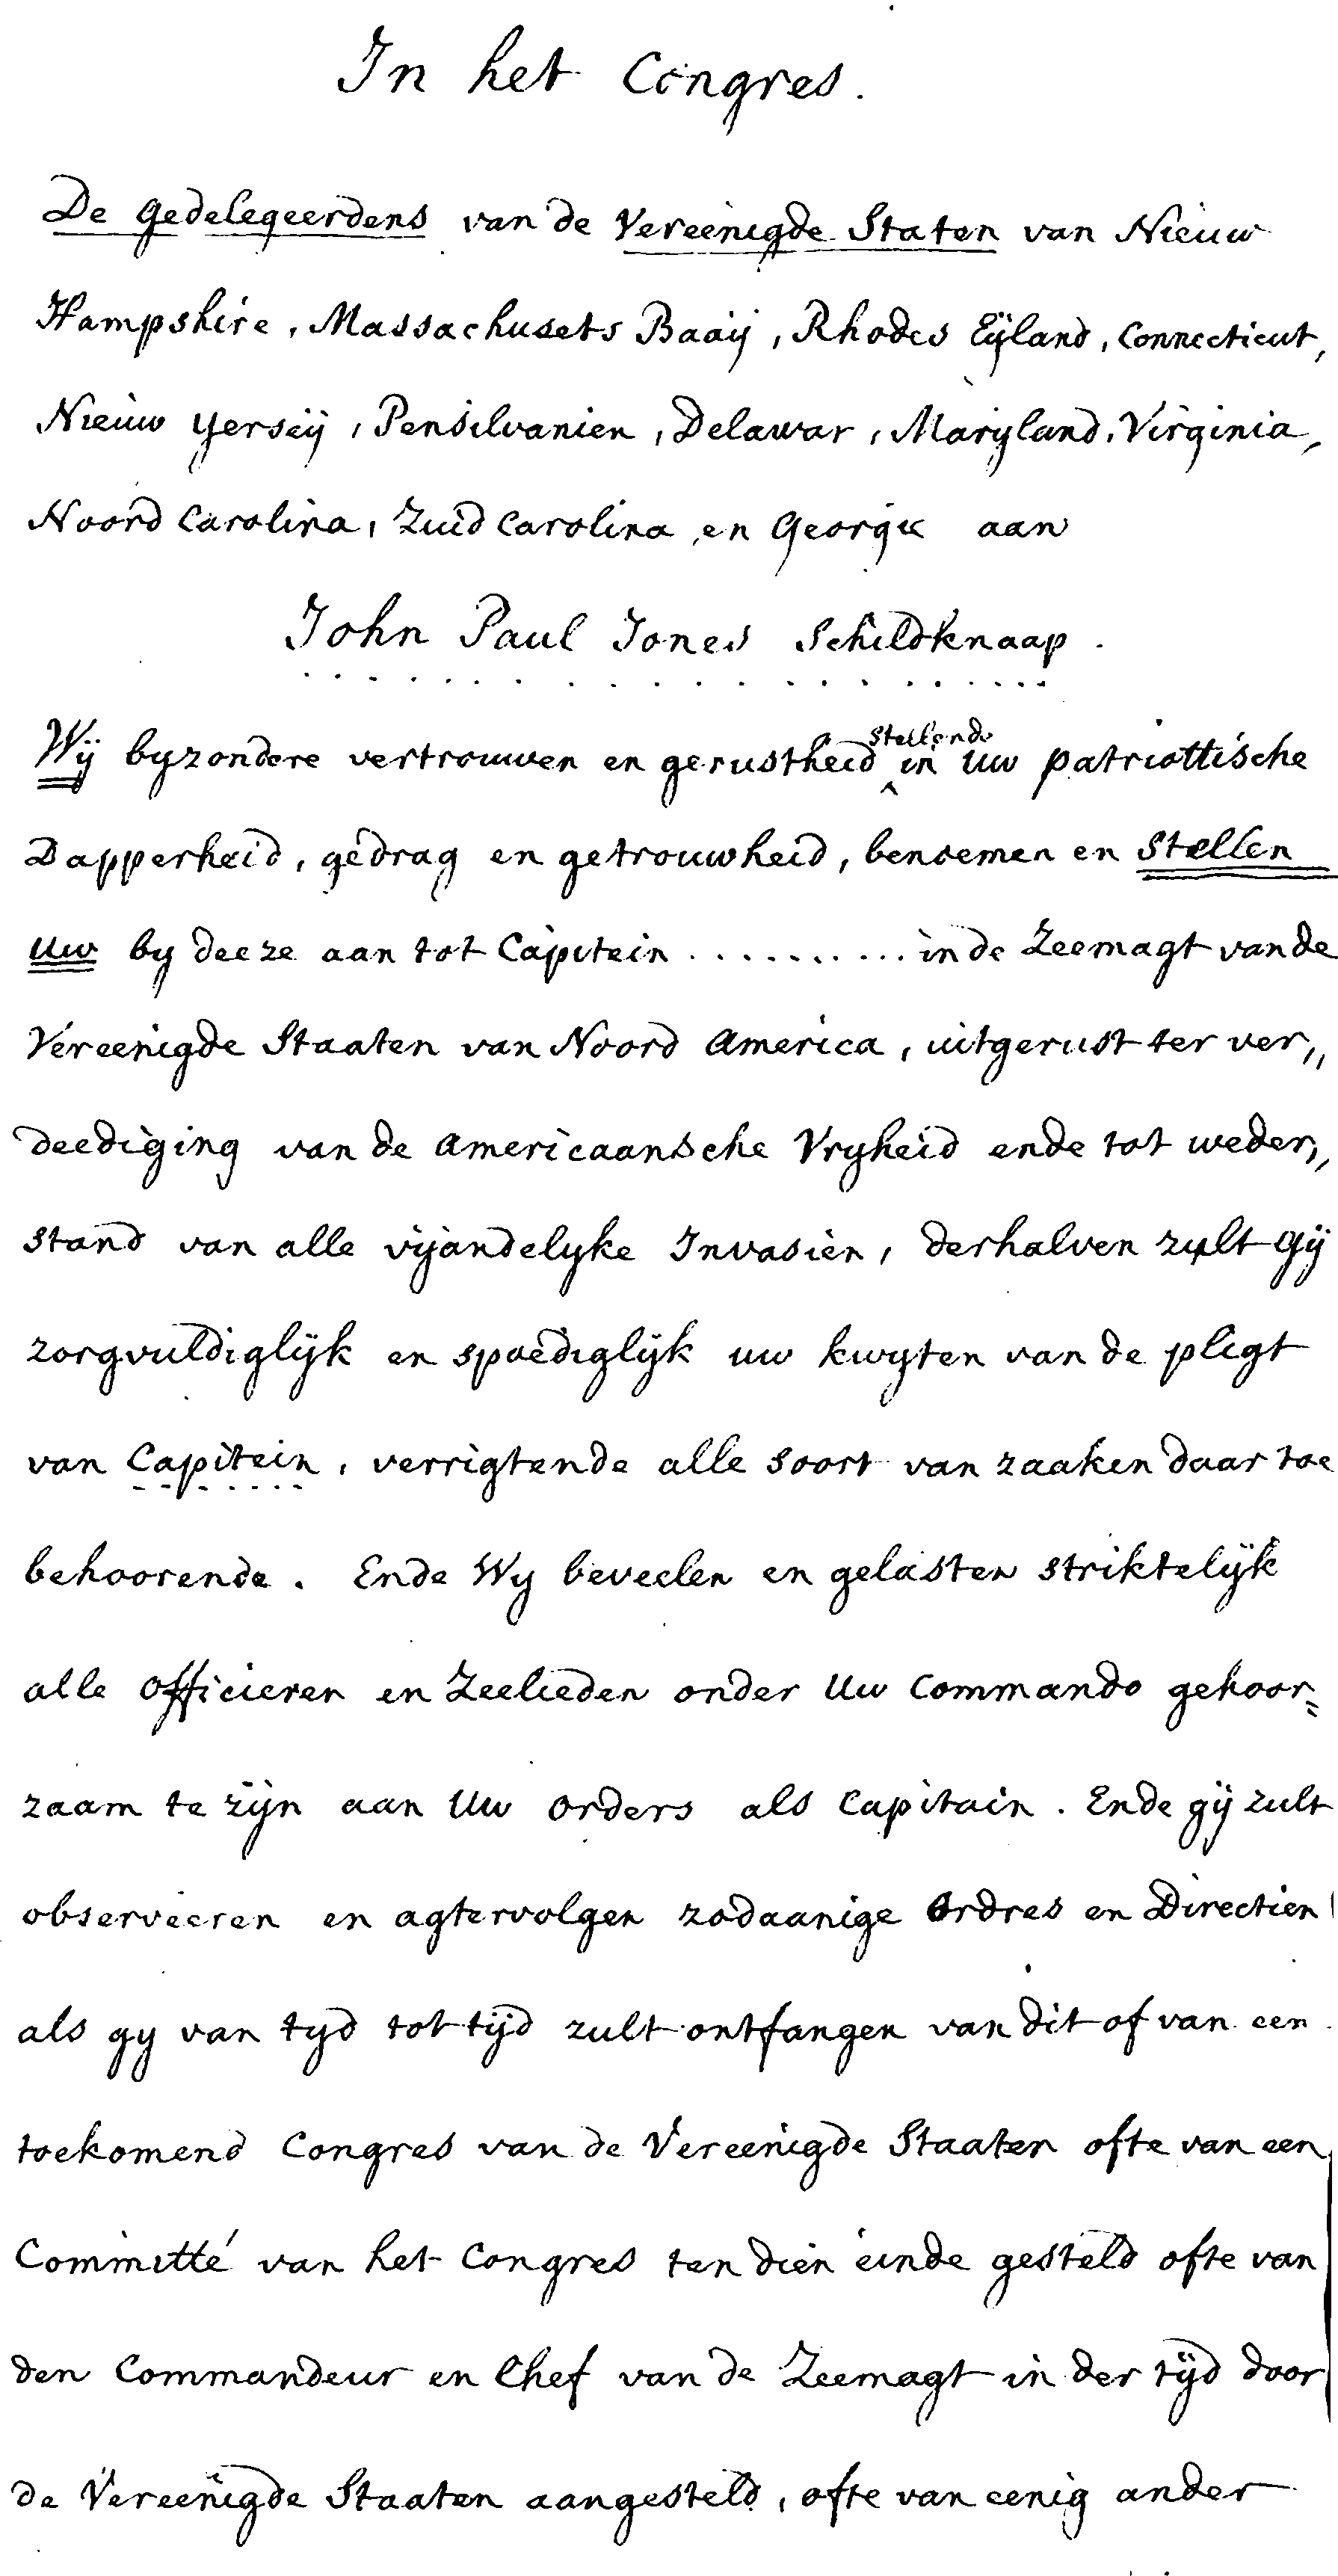 In het Congres.
De Gedelegeerdens van de Vereenigde Staten van Nieuw
Hampshire, Massachusets Baaij, Rhodes Eijland, Connecticut,
Nieuw Yerseij, Pensilvanien, Delawar, Marijland, Virginia,
Noord Carolina, Zuid Carolina, en Georgie aan
John Paul Jones Schildknaap.
Wij byzondere vertrouwen en gerustheid stellende in uw patriottische
Dapperheid, gedrag en getrouwheid, benoemen en Stellen
Uw by deeze aan tot Capitein ........... in de Zeemagt van de
Vereenigde Staaten van Noord America, uitgerust ter ver,,
deediging van de Americaansche Vryheid ende tot weder,,
stand van alle vijandelyke Invasien, derhalven zult Gij
zorgvuldiglijk en spoediglijk uw kwyten van de pligt
van Capitein, verrigtende alle soort van zaaken daar toe
behoorende. Ende Wy beveelen en gelasten striktelijk
alle Officieren en Zeelieden onder Uw Commando gehoor=
zaam te zijn aan Uw orders als Capitain. Ende gij zult
observeeren en agtervolgen zodaanige Ordres en Directien
als gy van tyd tot tijd zult ontfangen van dit of van een
toekomend Congres van de Vereenigde Staaten ofte van een
Committé van het Congres ten dien einde gesteld ofte van
den Commandeur en Chef van de Zeemagt in der tijd door
de Vereenigde Staaten aangesteld, ofte van eenig ander